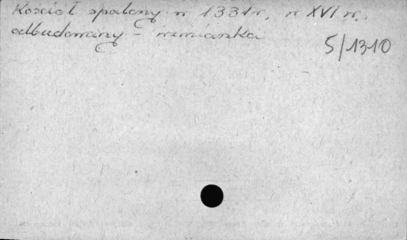 Kościół spalony w 1331 r., w XVI w.
odbudowany - wzmianka
5/1310